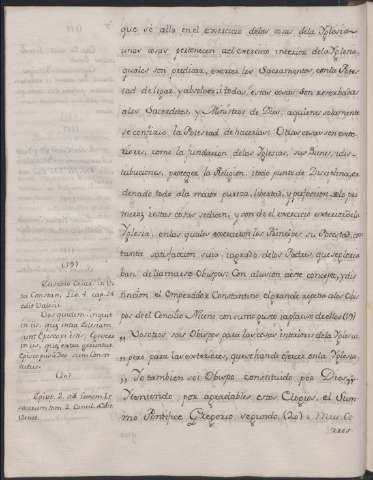 que se alla en el exercicio de las cosas de la Yglesia
unas cosas pertenecen al exercicio interior de la Yglesia,
quales son predicar, exercer los Sacramentos, con la Potes
tad de ligar, y absolver, i todas estas cosas son reserbadas
a los Sacerdotes, y Ministros de Dios, a quienes solamente
se confirio la Potestad de hacerlas: Otras cosas son exte
riores, como la fundacion de las Yglesias, sus Bienes, i dis
tribuciones, proteger la Religion, i todo punto de Disciplina, or
denado todo a la maior pureza, libertad, y perfeccion de las pri
meras, i estas cosas se dicen, y son de el exercicio exterior de la
Yglesia, en las quales exercieron los Principes su Potestad, con
tanta satisfaccion suia, i agrado de los Padres, que se precia
ban de llamarse Obispos: Con alusion a este concepto, y dis
tincion el Emperador Constantino el grande, a los Obis
pos de el Concilio Niceno con sumo gusto, i aplauso de ellos (19)
,, Vosotros sois Obispos para las cosas interiores de la Yglesia
,, pero para las exteriores, que se han de exercer en la Yglesia,
,, Yo tambien soi Obispo constituido por Dios,,
Haviendo por agradables estos Elogios, el Sum
mo Pontifice Gregorio segundo (20): Mui Co
rres
(19)
Eusebio Cesar. in Vi
ta Constan. Lib. 4 cap. 24
edit Valesii.
Vos quidem, inquit
in iis, quæ intra Ecclesiam
sunt Episcopi estis; Ego vero
in iis, quæ extra geruntur
Episcopus a Deo sum Consti
tutus.
(20)
Epist. 2. ad Leonem Is
auricum tom 2. Concil. Edit